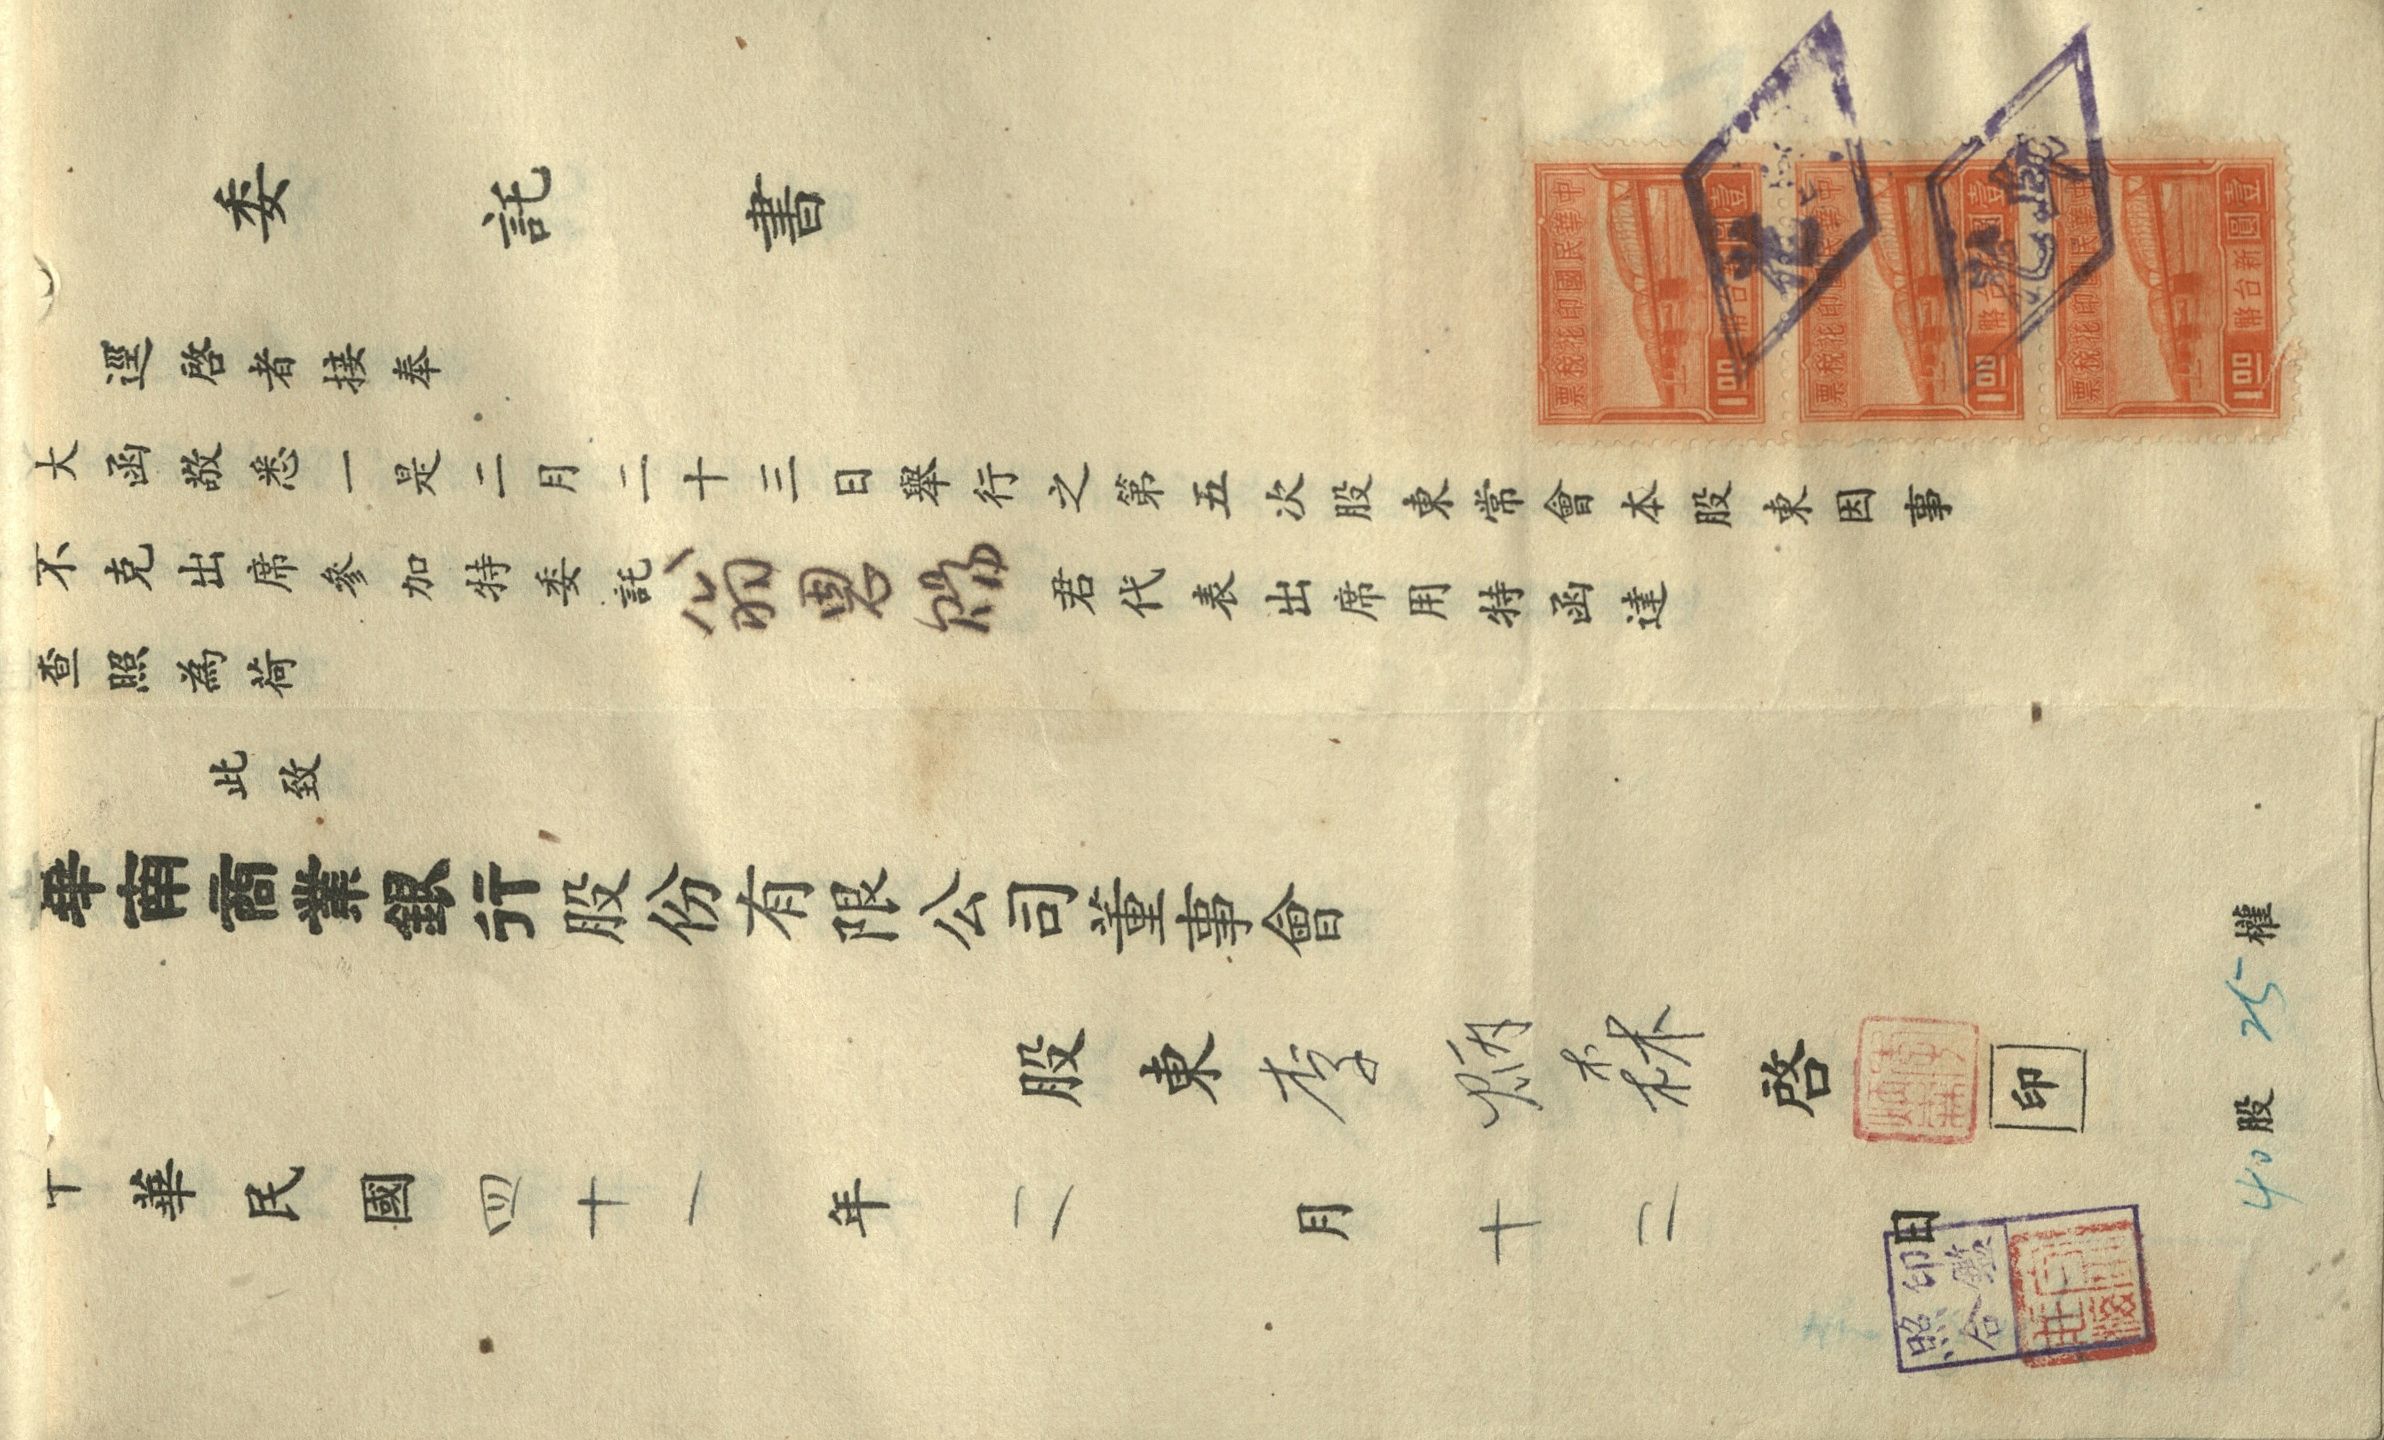 委託書
逕啓者接奉
大函敬悉一是二月二十三日舉行之第五次股東常會本股東因事
不克出席參加特委託翁恩 君代表出席用特函達
查照為荷
此致
華南商業銀行股份有限公司董事會
股東李炳森啓
印
中華民國四十一年二月十二日
40股 25權
印鑑
照合
中華民國印花稅票
壹圓新台幣
1.00
中華民國印花稅票
壹圓新台幣
1.00
中華民國印花稅票
壹圓新台幣
1.00